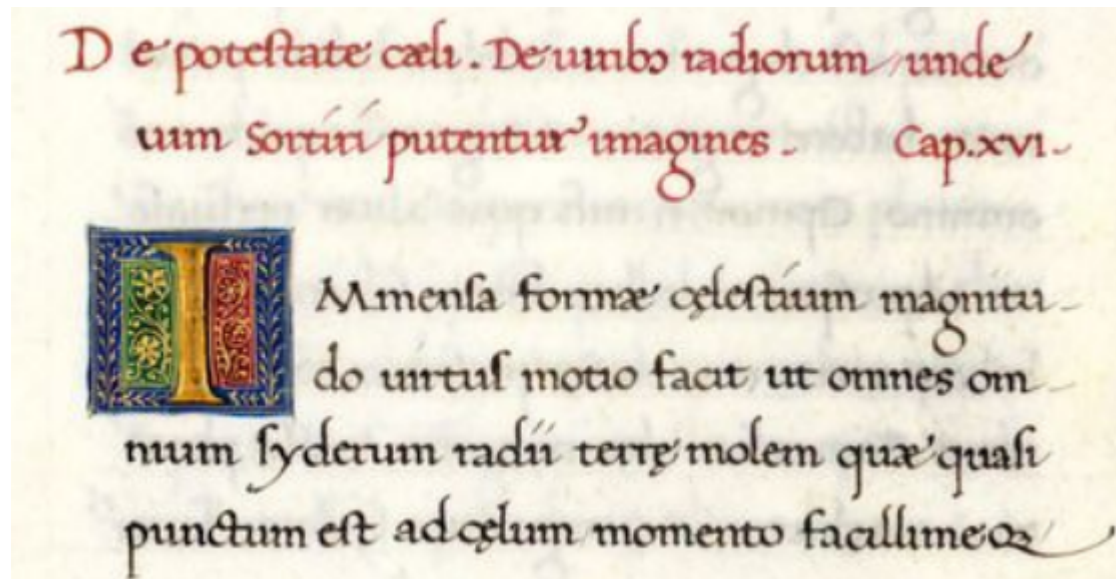 De potestate cæli. De uiribꝯ radiorum unde
uim Sortiri putentur imagines. Cap. xvi.
IMmensa formæ cęlestium magnitu
do uirtus motio facit ut omnes om
nium syderum radii terrę molem quæ quasi
punctum est ad cęlum momento facillimeꝗ